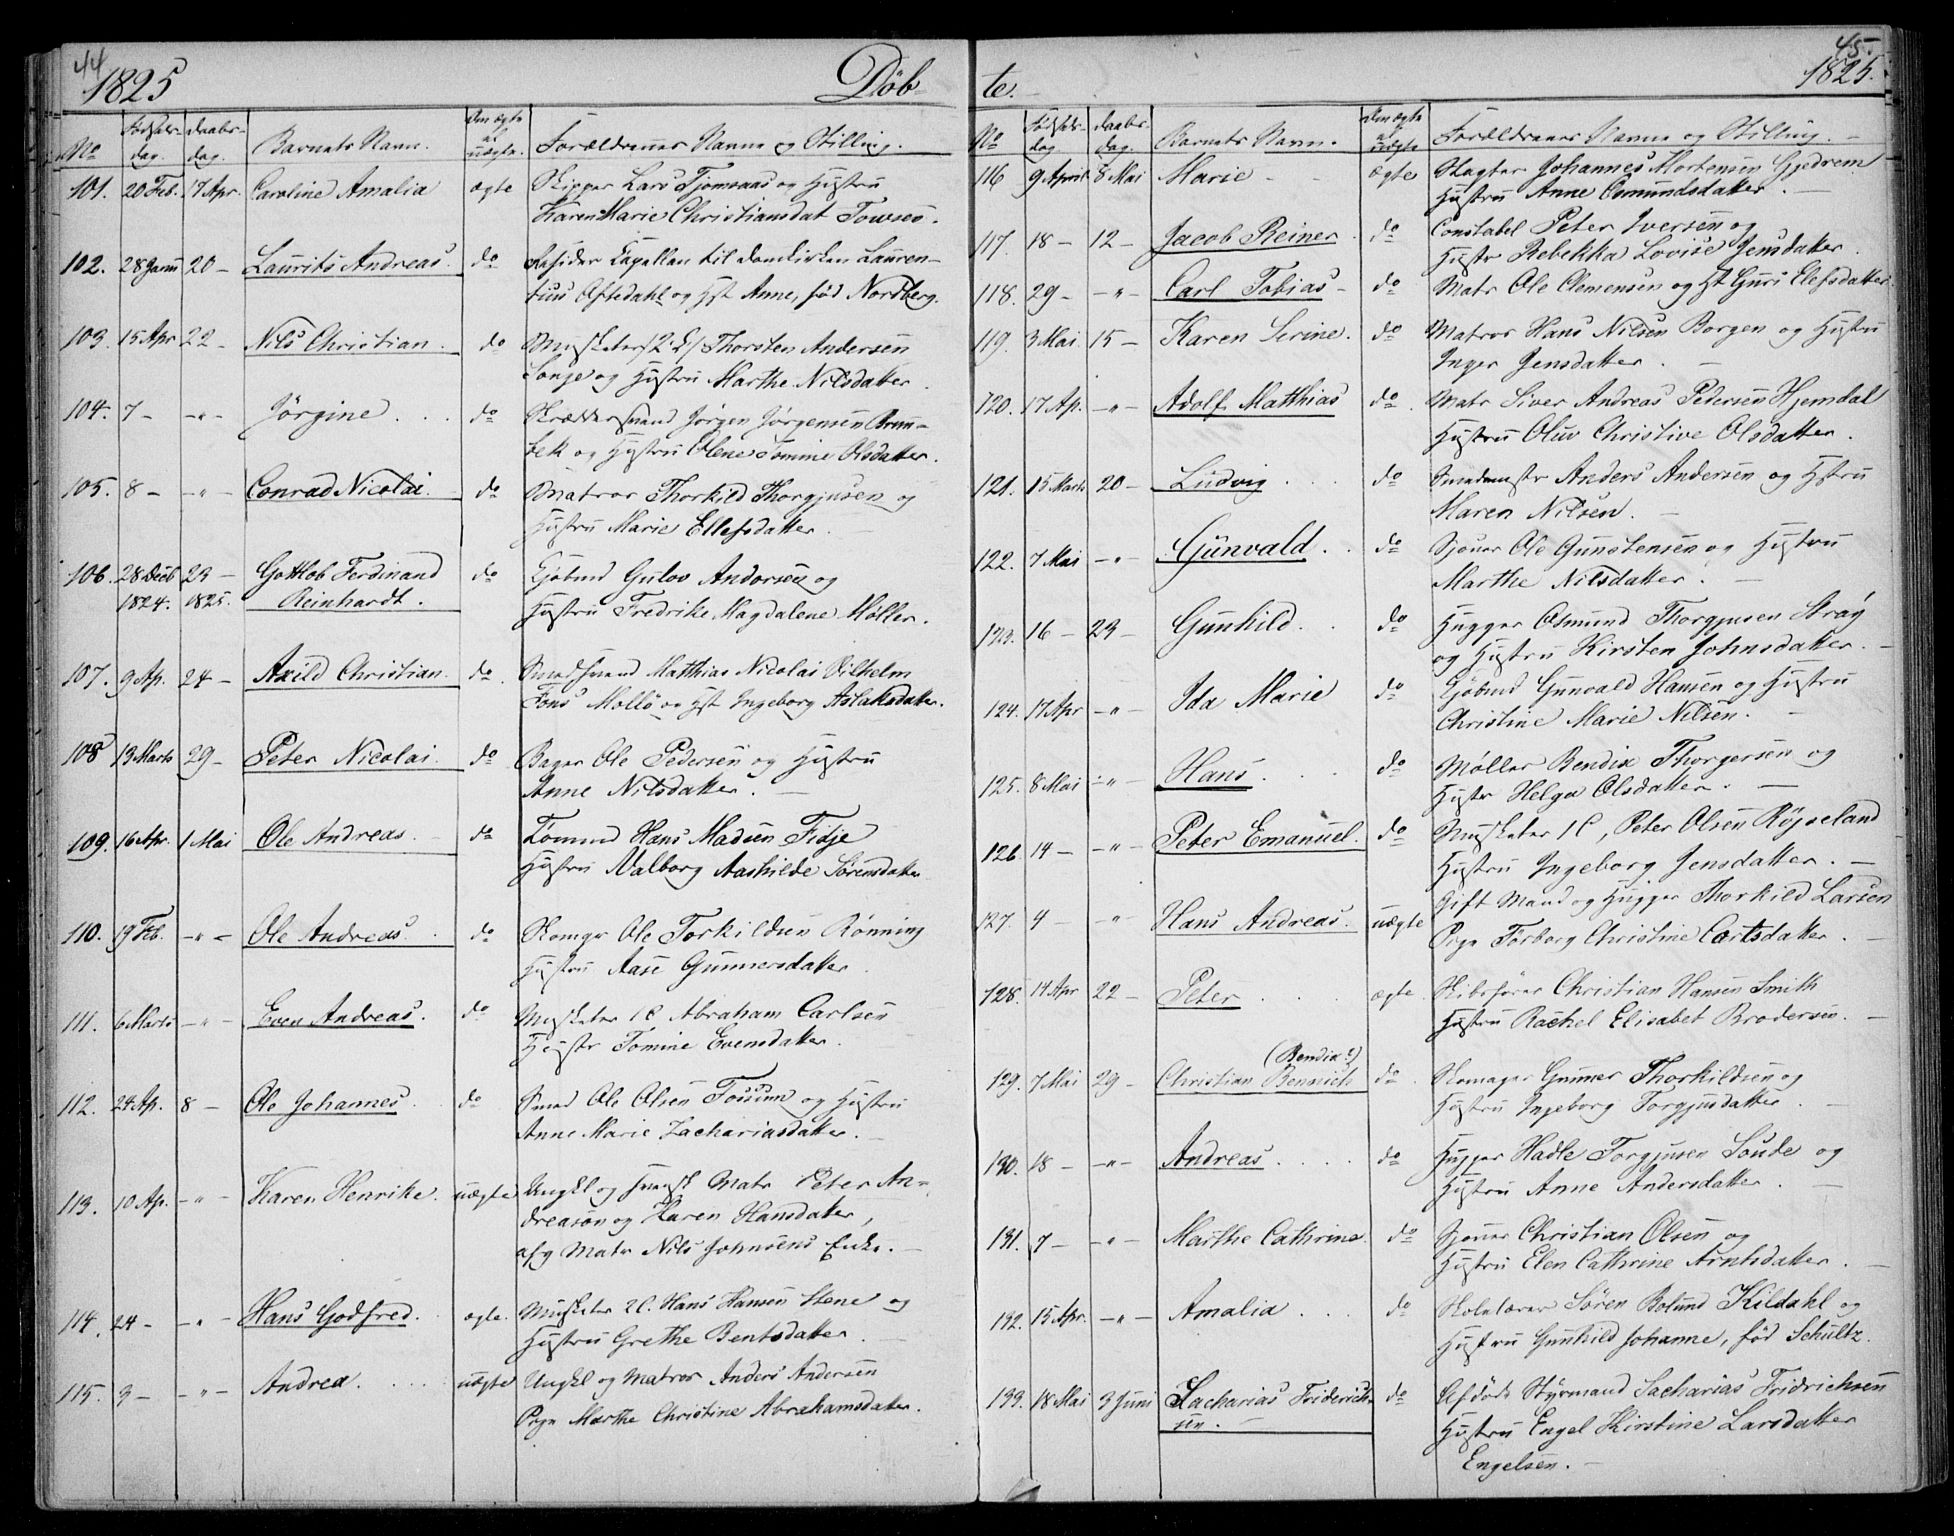 44
1825
Døb
No
Fødsels-
dag.
Daabs-
dag.
Barnets Navn.
Om ægte
el
uægte.
Forældrenes Navne og Stilling.
101. 20 Feb. 17 Apr. Caroline Amalia ægte Skipper Lars Tjomsaas og Hustru
Karen Marie Christiansdat Towsen.
102. 28 Janu 20 - Laurits Andreas. do Residen Capellan til Domkirken Lauren-
tius Oftedahl og Hst Anne, fød Nordberg.
103. 15 Apr 22 - Nils Christian. do Musketer 2 Thorsten Andersen
Songe og Hustru Marthe Nilsdatter.
104. 7 - -"- Jørgine . . . do Skræddersvend Jørgen Jørgensen Brun-
bek og Hustru Olene Tomine Olsdatter.
105. 8 - -"- Conrad Nicolai. do Matros Thorkild Thorgjusen og
Hustru Marie Ellefsdatter.
106. 28 Decb 23 - Gottlob Ferdinand do Kjøbmd Gulov Andersen og
1824. 1825. Reinhardt. Hustru Fredrike Magdalene Møller.
107. 9 Ap. 24 - Axild Christian. do. Smedsvend Matthias Nicolai Vilhelm
Fons Mollø og Hst Ingeborg Aslaksdatter.
108 13 Marts 29 - Peter Nicolai. do Bager Ole Pedersen og Hustru
Anne Nilsdatter. -
109. 16 Apr. 1 Mai Ole Andreas. do Tømmd Hans Madsen Fidje
Hustru Valborg Aashilde Sørensdatter
110. 19 Feb. -"- Ole Andreas. do Skomgr Ole Torkildsen Rønning
Hustru Aase Gunnersdatter.
111. 6 Marts -"- Even Andreas. do Musketer 1C Abraham Carlsen
Hustr Tomine Evensdatter.
112. 24 Ap. 8 - Ole Johannes do Smed Ole Olsen Fossum og Hustru
Anne Marie Zachariasdatter. -
113. 10 Ap. -"- Karen Henrike. uægte Ungkl og svensk Matr Peter An-
dreason og Karen Hansdatter,
afg Matr Nils Johnsens Enke. -
114. 24 - -"- Hans Godfred. ægte. Musketer 2C. Hans Hansen Stene og
Hustru Grethe Bentsdatter. -
115. 3 - -"- Andrea. . . . uægte Ungkl og Matros Anders Andersen
Pige Marthe Christine Abrahamsdatter.
45.
1825.
te.
No
Fødsels-
dag.
Daabs-
dag.
Barnets Navn.
Om ægte
el
uægte
Forældrenes Navne og Stilling. -
116 9 April 8 Mai Marie - - ægte Slagter Johannes Mortensen Gjedrem
Hustru Anne Osmundsdatter. -
117. 18 - 12 - Jacob Reiner. do Constabel Peter Iversen og
Hustr Rebekka Lovise Jensdatter.
118. 29 - -"- Carl Tobias - do Matr Ole Clemensen og Hst Guri Elefsdatter
119. 3 Mai 15 - Karen Serine. do Matros Hans Nilsen Borgen og Hustru
Inger Jensdatter. -
120. 17 Ap. -"- Adolf Matthias do Matr Siver Andreas Pedersen Hjemdal
Hustru Oluv Christive Olsdatter.
121. 15 Marts 20 - Ludvig . . . do Smedmestr Anders Andersen og Hstru
Maren Nilsen. -
122. 7 Mai -"- Gunvald. . do Sjouer Ole Gunstensen og Hustru
Marthe Nilsdatter. -
123. 16 - 23 - Gunhild. . do Hugger Osmund Thorgjusen Straj
og Hustru Kirsten Johnsdatter. -
124. 17 Apr -"- Ida Marie do Kjøbmd Gunvald Hansen og Hustru
Christine Marie Nilsen. -
125. 8 Mai -"- Hans. . . . do Møller Bendix Thorgersen og
Hustr Helga Olsdatter. -
126. 14 - -"- Peter Emanuel. do Musketer 1C, Peter Olsen Röjseland
Hustru Ingeborg Jensdatter. -
127. 4 - -"- Hans Andreas. uægte Gift Mand og Hugger Thorkild Larsen
Pige Torborg Christine Carlsdatter. -
128. 14 Apr 22 - Peter . . . ægte. Skibsfører Christian Hansen Smith
Hustru Rachel Elisabet Brodersen. -
(Bendix?)
129. 7 Mai 29 - Christian Bennich do. Skomager Gunner Thorkildsen og
Hustru Ingeborg Torgjusdatter. -
130. 18 - -"- Andreas. . . . do Hugger Hadle Torgjusen Soude og
Hustru Anne Andersdatter. -
131. 7 - -"- Marthe Cathrine do Sjouer Christian Olsen og
Hustru Elen Cathrine Arntsdatter. -
132. 15 Apr. -"- Amalia . . . do Skolelærer Sören Bolund Kildahl og
Hustru Gunhild Johanne, fød Schultz.
133. 18 Mai 3 Juni Zacharias Friderich- do Afdøde Styrmand Sacharias Fridrichsen
sen. - Hustru Engel Kirstine Larsdatter
Engelsen. -